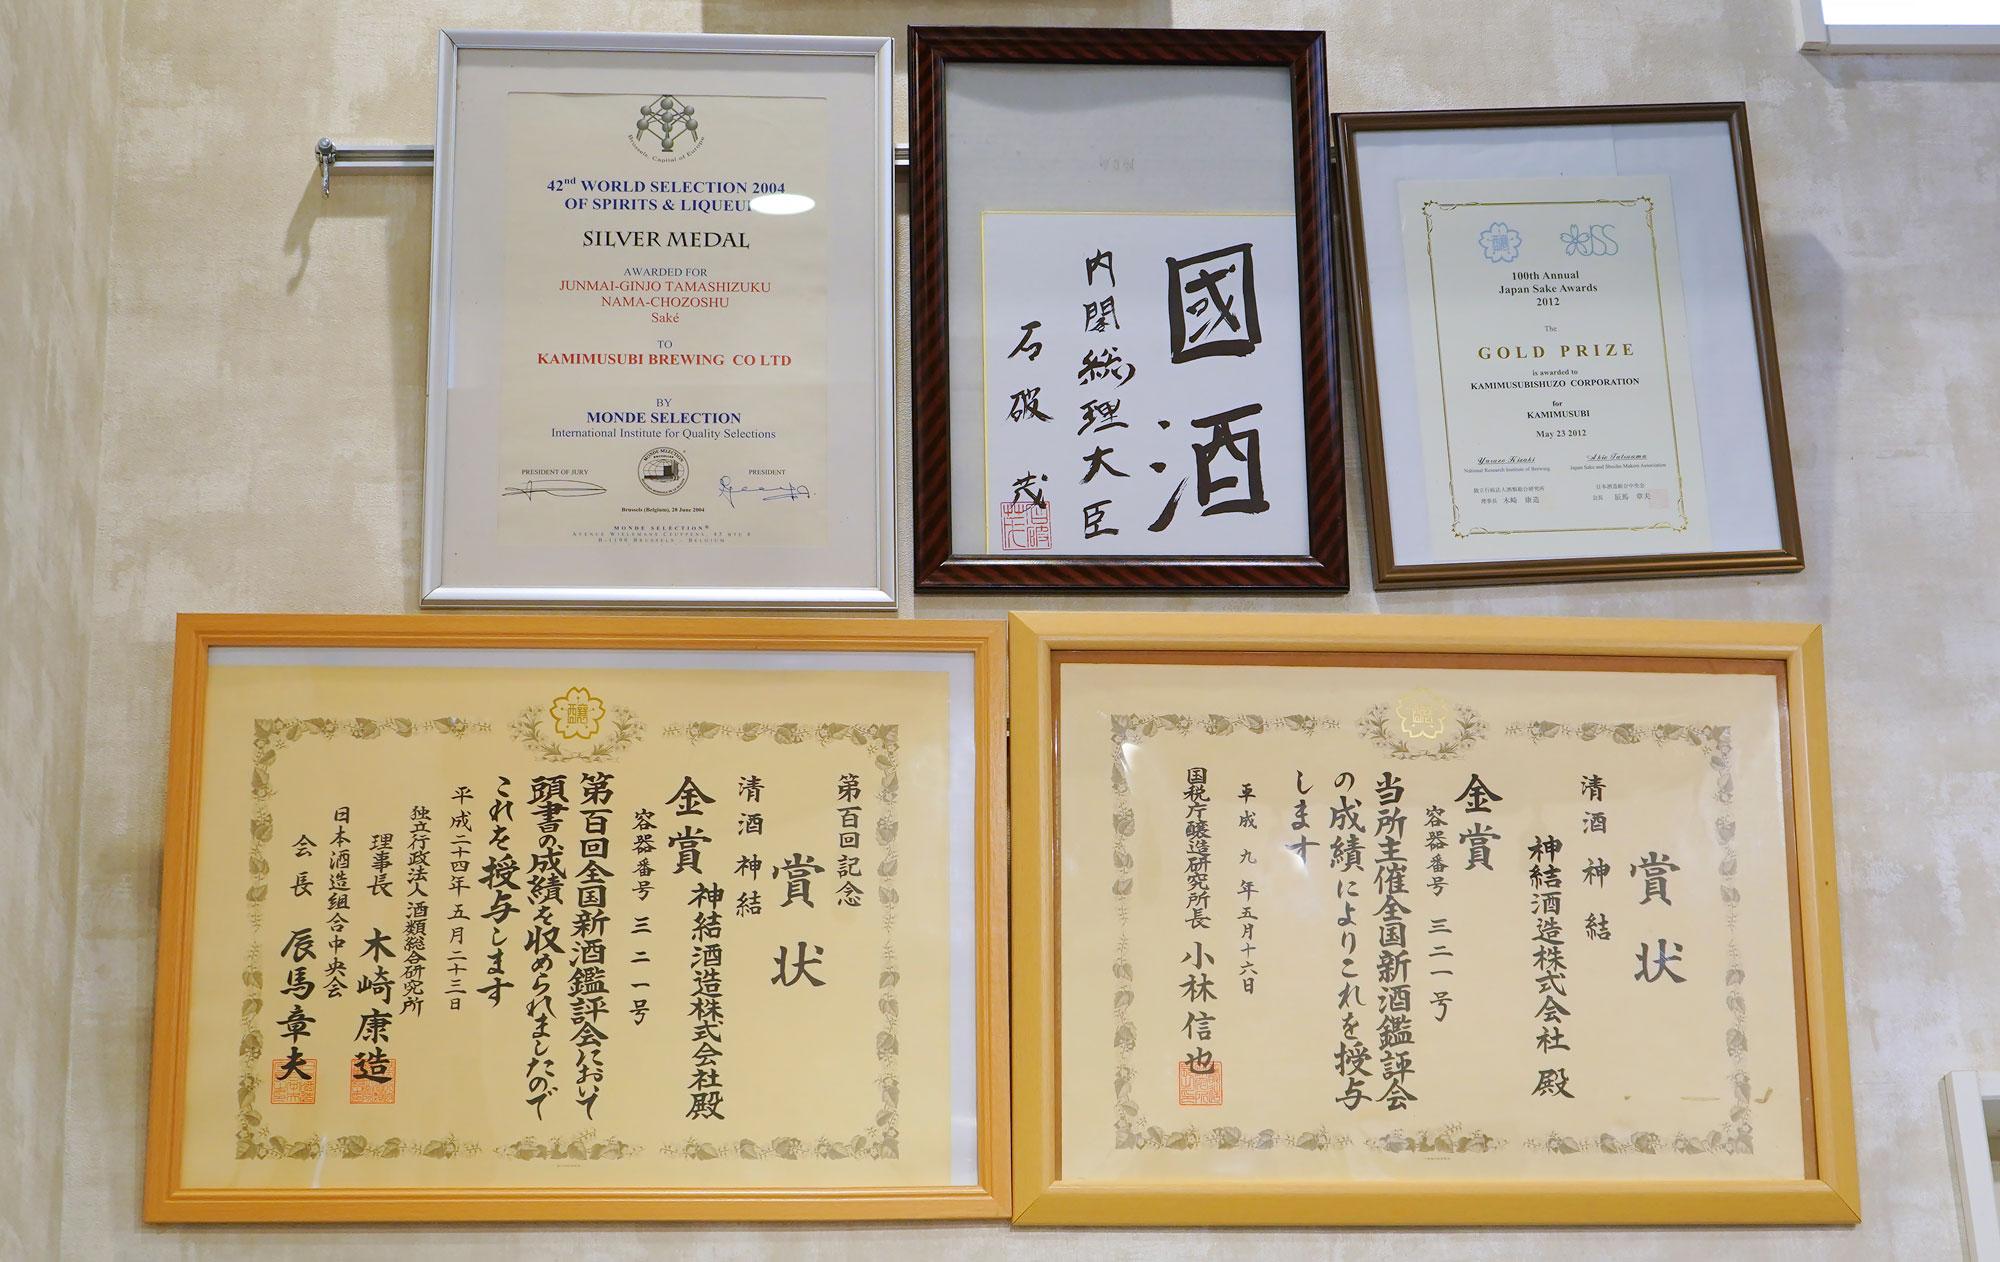 Brussels, Capital of Europe
42nd WORLD SELECTION 2004
OF SPIRITS & LIQUEU
SILVER MEDAL
AWARDED FOR
JUNMAI-GINJO TAMASHIZUKU
NAMA-CHOZOSHU
Saké
TO
KAMIMUSUBI BREWING CO LTD
BY
MONDE SELECTION
International Institute for Quality Selections
PRESIDENT OF JURY
PRESIDENT
Brussels (Belgium), 28 June 2004
MONDE SELECTION®
AVENUE WIELEMANS CEUPPENS, 45 BTE 6
B-1190 BRUSSELS - BELGIUM
國酒
内閣総理大臣
石破茂
JSS
100th Annual
Japan Sake Awards
2012
The
GOLD PRIZE
is awarded to
KAMIMUSUBISHUZO CORPORATION
for
KAMIMUSUBI
May 23 2012
Yasuzo Kizaki
National Research Institute of Brewing
独立行政法人酒類総合研究所
理事長 木崎 康造
Akio Tatsuuma
Japan Sake and Shochu Makers Association
日本酒造組合中央会
会長 辰馬 章夫
醸
第百回記念
賞状
清酒 神結
神結酒造株式会社殿
金賞
容器番号 三二一号
第百回全国新酒鑑評会において
頭書の成績を収められましたので
これを授与します
平成二十四年五月二十三日
独立行政法人酒類総合研究所
理事長 木崎康造
日本酒造組合中央会
会長 辰馬章夫
醸
賞状
清酒 神結
神結酒造株式会社殿
金賞
容器番号 三二一号
当所主催全国新酒鑑評会
の成績によりこれを授与
します
平成九年五月十六日
国税庁醸造研究所長 小林信也